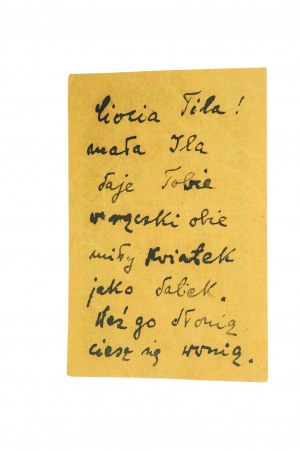 Ciocia Tila!
mała Ila
daje Tobie
w rączki obie
miły kwiatek
jako datek.
Weź go dłonią
ciesz się wonią.